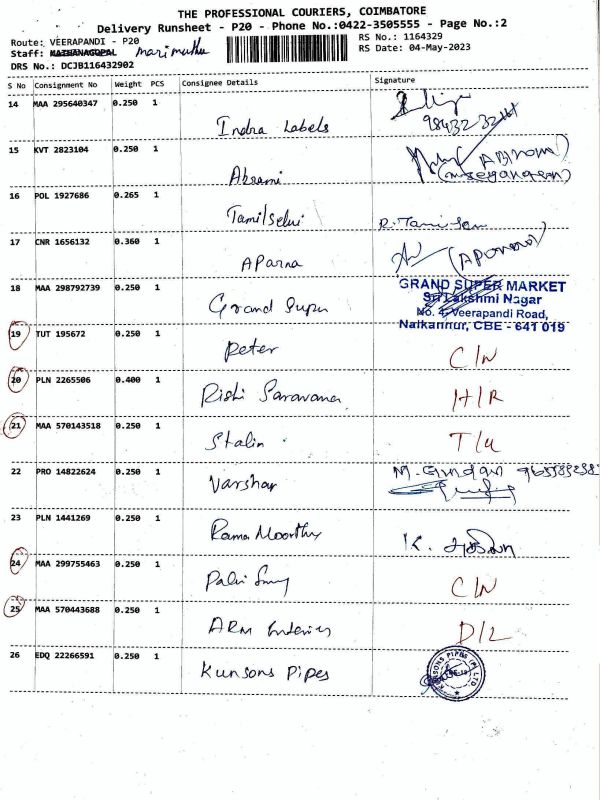 THE PROFESSIONAL COURIERS, COIMBATORE
Delivery Runsheet - P20 - Phone No.:0422-3505555 - Page No.:2
Route: VEERAPANDI - P20
RS No.: 1164329
Staff: Marimuthu
RS Date: 04-May-2023
DRS No.: DCJB116432902
S No Consignment No Weight PCS Consignee Details Signature
14 MAA 295640347 0.250 1 Indra Labels
15 KVT 2823104 0.250 1 Abrami
16 POL 1927686 0.265 1 Tamilselvi R. Tamilsen
17 CNR 1656132 0.360 1 APARNA
18 MAA 298792739 0.250 1 Grand Super GRAND SUPER MARKET
Sri Lakshmi Nagar
No. 4, Veerapandi Road,
Naikannur, CBE - 641 019
19 TUT 195672 0.250 1 Peter C/N
20 PLN 2265506 0.400 1 Rishi Saravana H/R
21 MAA 570143518 0.250 1 Stalin T/U
22 PRO 14822624 0.250 1 Varshar
23 PLN 1441269 0.250 1 Rama Moorthy K.
24 MAA 299755463 0.250 1 C/N
25 MAA 570443688 0.250 1 ARM Interior D/L
26 EDQ 22266591 0.250 1 Kunsons Pipes